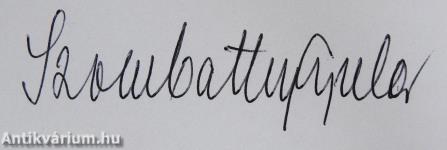 Szombathy Gyula
Antikvárium.hu